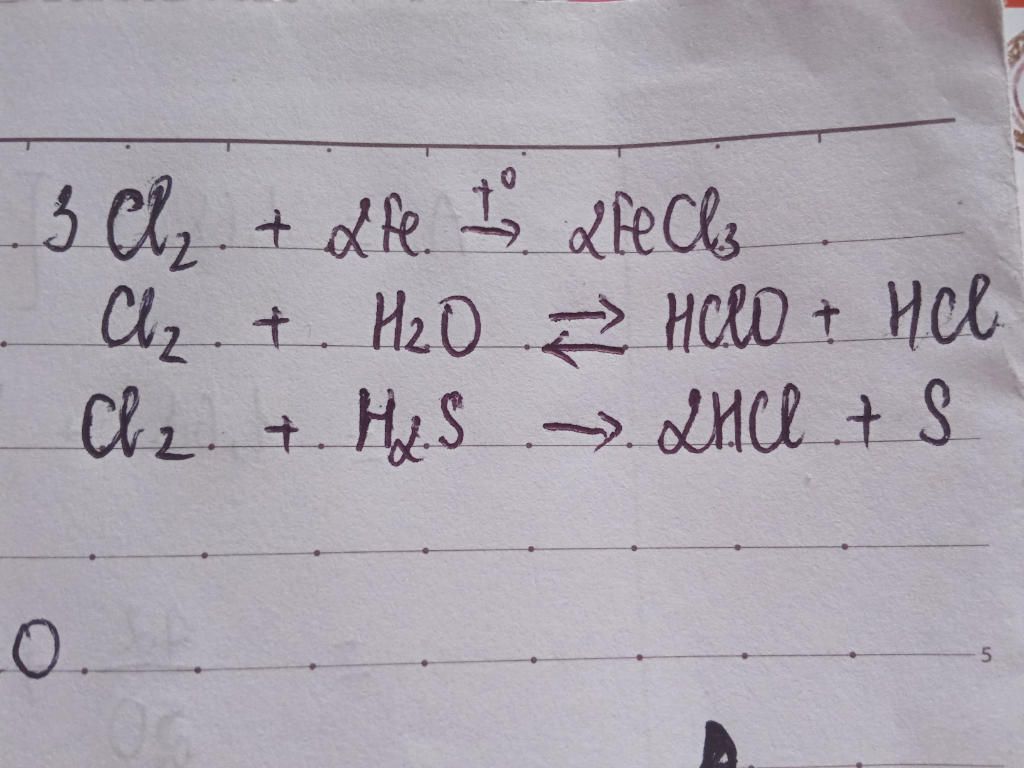 3 Cl₂ + 2Fe t° → 2FeCl₃
Cl₂ + H₂O ⇌ HClO + HCl
Cl₂ + H₂S → 2HCl + S
O
5